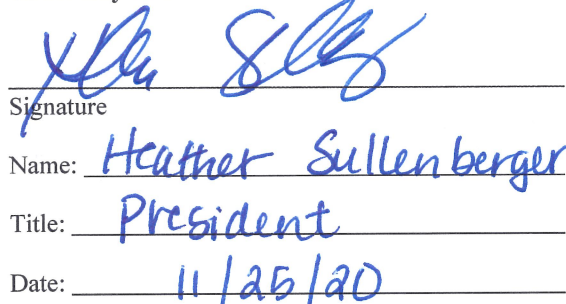 Signature
Name: Heather Sullenberger
Title: President
Date: 11/25/20